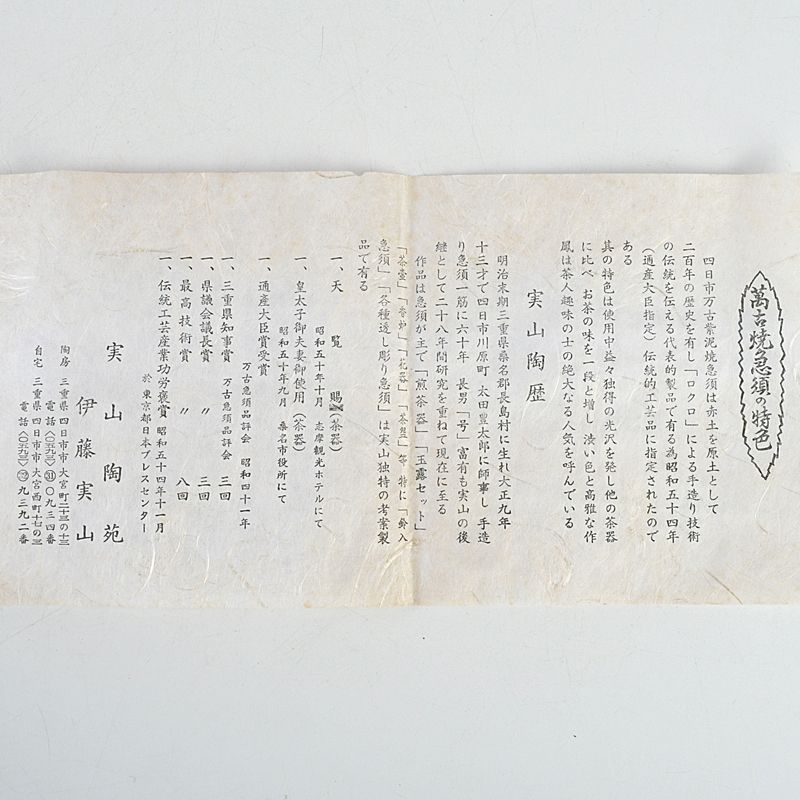 萬古焼急須の特色
四日市万古紫泥焼急須は赤土を原土として
二百年の歴史を有し「ロクロ」による手造り技術
の伝統を伝える代表的製品で有る為昭和五十四年
(通産大臣指定)伝統的工芸品に指定されたので
ある
其の特色は使用中益々独得の光沢を発し他の茶器
に比べ お茶の味を一段と増し 渋い色と高雅な作
風は茶人趣味の士の絶大なる人気を呼んでいる
実山陶歴
明治末期三重県桑名郡長島村に生れ大正九年
十三才で四日市川原町 太田豊太郎に師事し 手造
り急須一筋に六十年 長男「号」富有も実山の後
継として二十八年間研究を重ねて現在に至る
作品は急須が主で「煎茶器」「玉露セット」
「茶壷」「香炉」「花器」「茶盌」等 特に「鈴入
急須」「各種透し彫り急須」は実山独特の考案製
品で有る
一、天覧 賜(茶器)
昭和五十年十月 志摩観光ホテルにて
一、皇太子御夫妻御使用(茶器)
昭和五十年九月 桑名市役所にて
一、通産大臣賞受賞
万古急須品評会 昭和四十一年
一、三重県知事賞 万古急須品評会 三回
一、県議会議長賞 〃 三回
一、最高技術賞 〃 八回
一、伝統工芸産業功労褒賞 昭和五十四年十一月
於東京都日本プレスセンター
実山陶苑
伊藤実山
陶房 三重県四日市市大宮町二十三の十三
電話〈〇五九三〉㉛〇九三四番
自宅 三重県四日市市大宮西町十七の三
電話〈〇五九三〉九三九二番